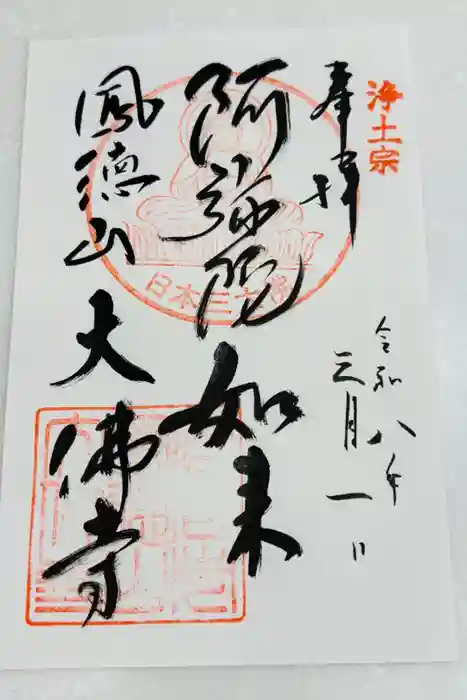 浄土宗
奉拝
令和八年
三月一日
阿弥陀如来
日本三大佛
鳳徳山
大佛寺